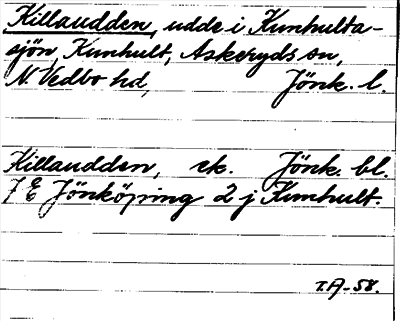 Killaudden, udde i Kunhulta-
sjön, Kunhult, Askeryds sn,
N Vedbo hd, Jönk. l.
Killaudden, ek. Jönk. bl.
7 E Jönköping 2 j Kunhult.
T.A-58.